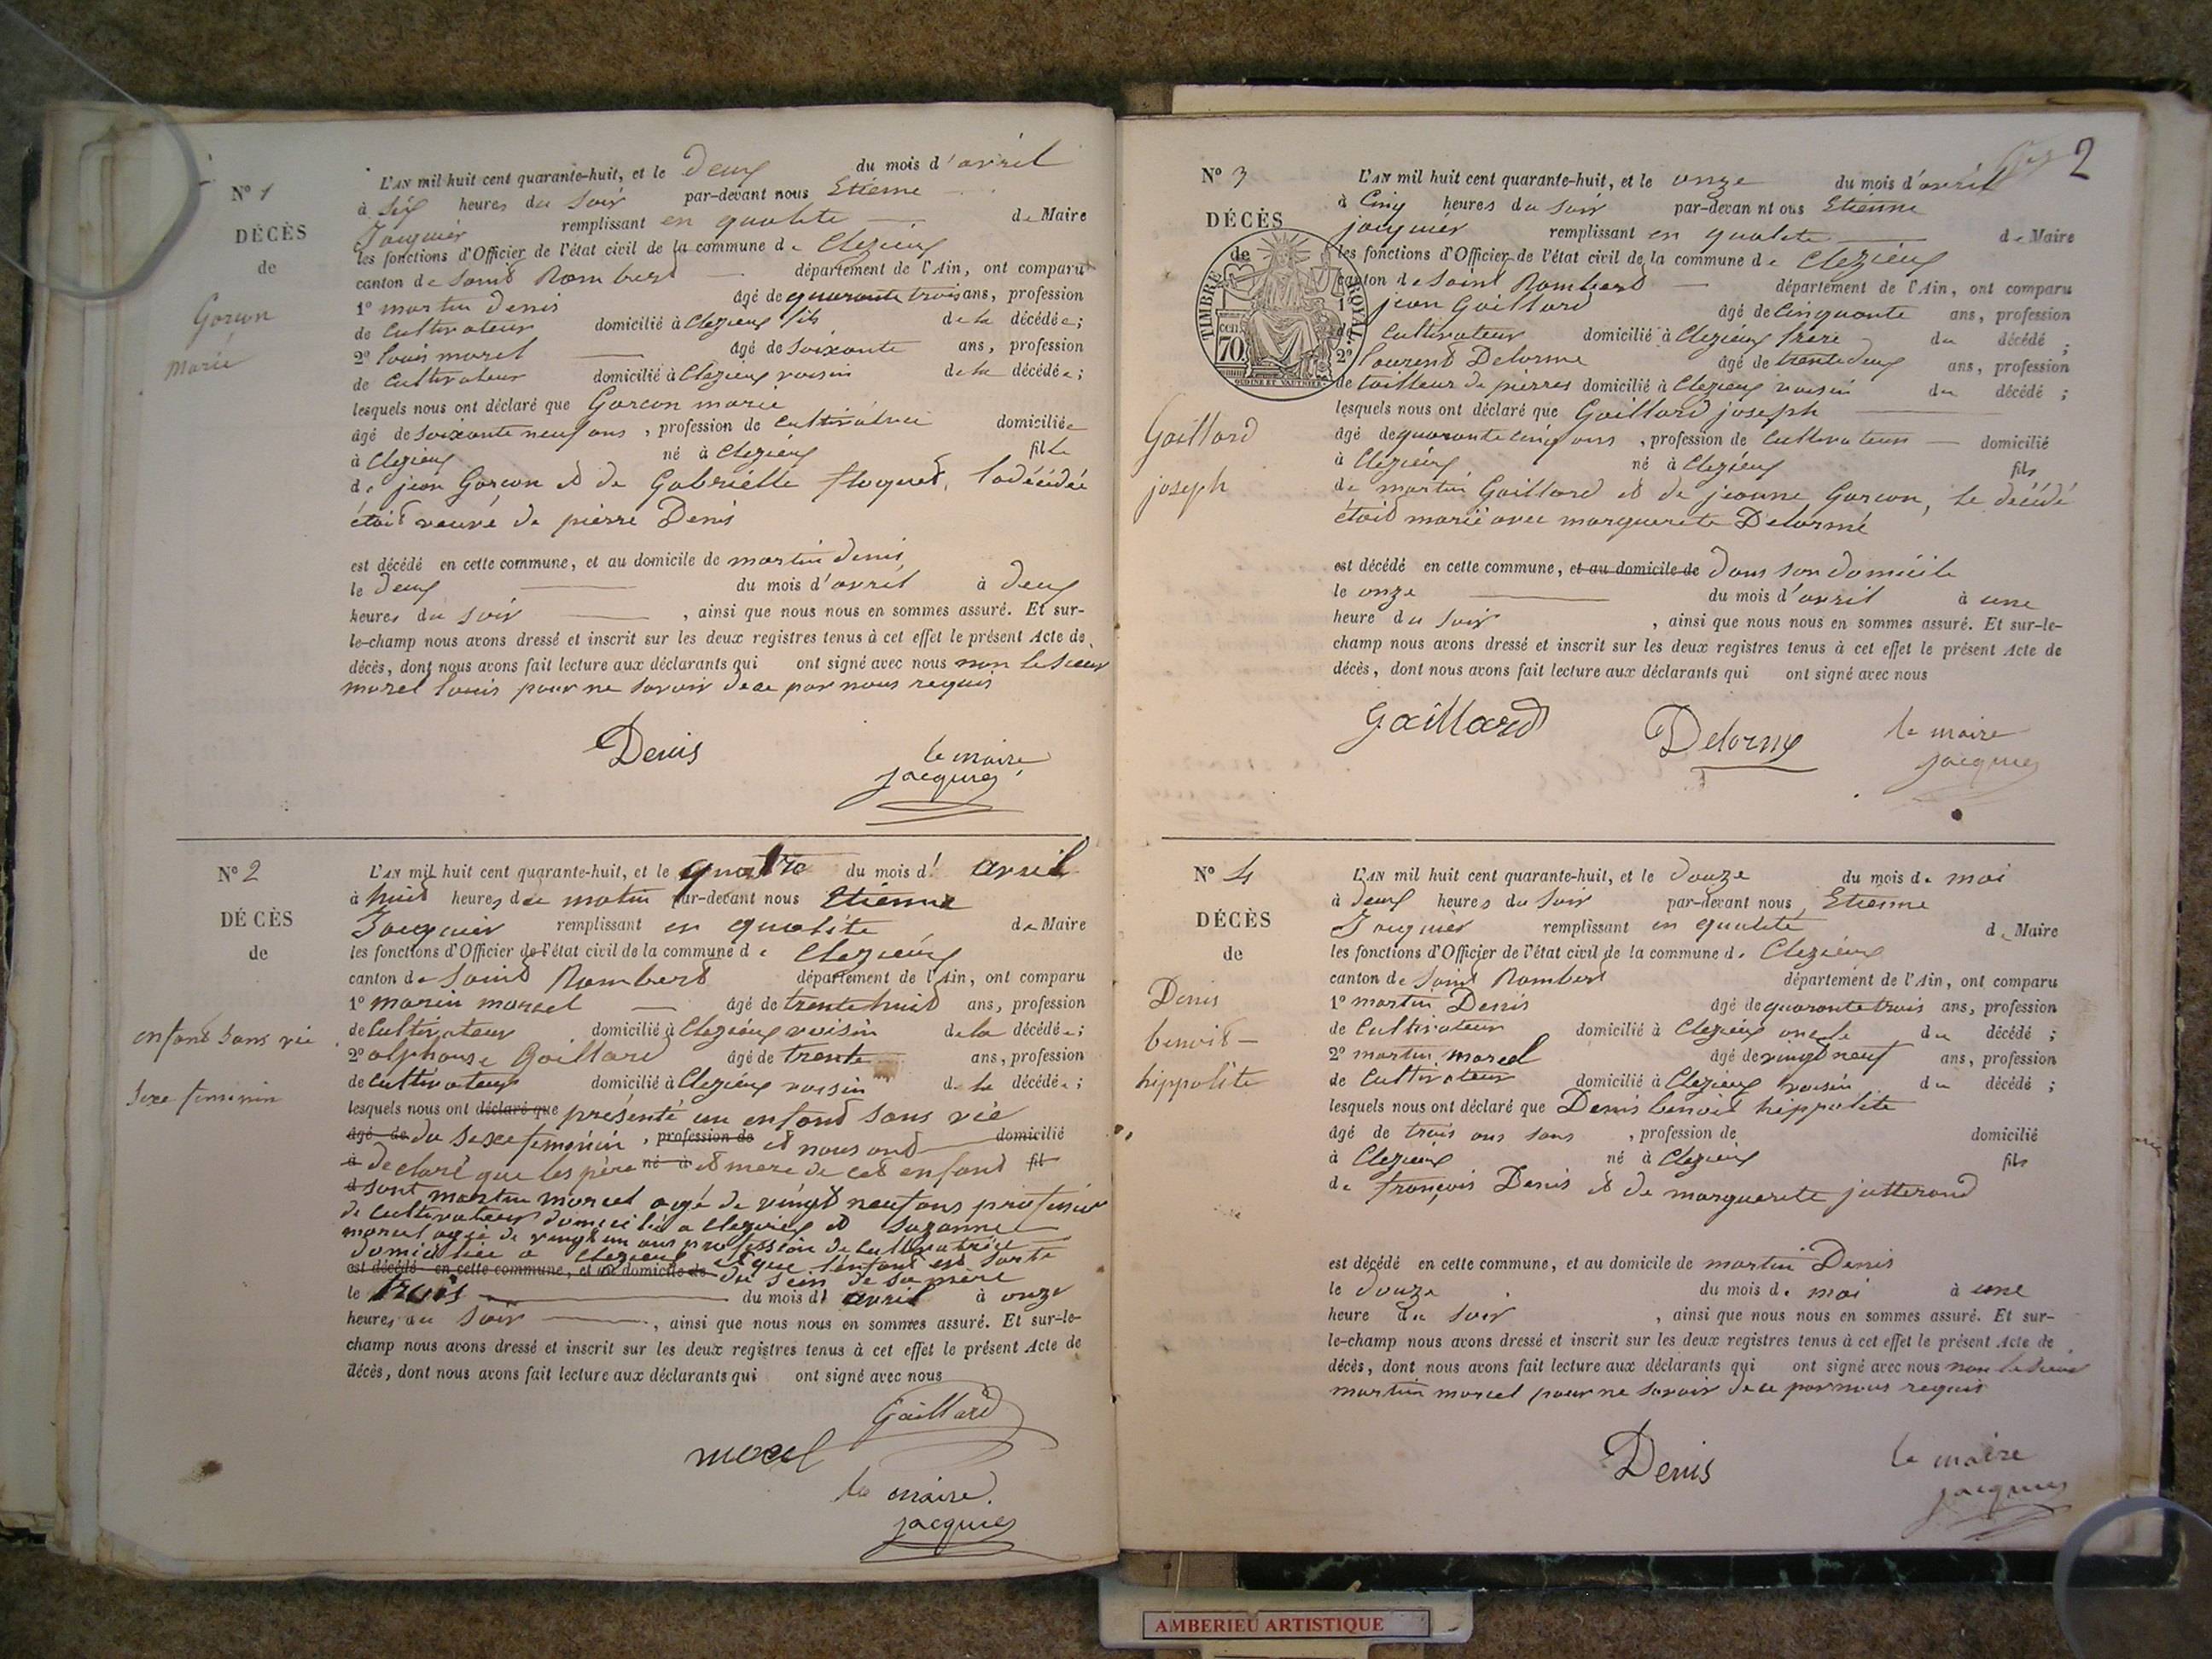 N° 1
DÉCÈS
de
Garcon
marie
L'AN mil huit cent quarante-huit, et le deux du mois d'avril
à six heures du soir par-devant nous Etienne
Jacquier remplissant en qualité de Maire
les fonctions d'Officier de l'état civil de la commune de Clezieux
canton de Saint Rambert département de l'Ain, ont comparu
1° martin denis âgé de quarante trois ans, profession
de Cultivateur domicilié à Clezieux fils de la décédée;
2° Louis morel âgé de soixante ans, profession
de Cultivateur domicilié à Clezieux voisin de la décédée;
lesquels nous ont déclaré que Garcon marie
âgé de soixante neuf ans, profession de Cultivatrice domiciliée
à Clezieux né à Clezieux fille
de jean Garcon et de Gabrielle floquet, la décédée
était veuve de pierre Denis
est décédé en cette commune, et au domicile de martin denis
le deux du mois d'avril à deux
heures du soir, ainsi que nous nous en sommes assuré. Et sur-
le-champ nous avons dressé et inscrit sur les deux registres tenus à cet effet le présent Acte de
décès, dont nous avons fait lecture aux déclarants qui ont signé avec nous non le sieur
morel louis pour ne savoir de ce par nous requis
Denis
le maire
jacquier
N° 2
DÉCÈS
de
enfant sans vie
sexe feminin
L'AN mil huit cent quarante-huit, et le quatre du mois d'avril
à huit heures du matin par-devant nous Etienne
Jacquier remplissant en qualité de Maire
les fonctions d'Officier de l'état civil de la commune de Clezieux
canton de Saint Rambert département de l'Ain, ont comparu
1° marin marcel âgé de trente huit ans, profession
de Cultivateur domicilié à Clezieux voisin de la décédée;
2° alphonse Gaillard âgé de trente ans, profession
de cultivateur domicilié à Clezieux voisin de la décédée;
lesquels nous ont déclaré que présenté un enfant sans vie
âgé de du sexe feminin, profession de et nous ont domicilié
à declaré que les père né à et mere de cet enfant fil
d sont martin marcel agé de vingt neuf ans profession
de Cultivateur domicilié a clezieux et suzanne
marcel agée de vingt un ans profession de Cultivatrice
domiciliée a Clezieux et que l'enfant est sorti
est décédé en cette commune, et au domicile de du sein de sa mère
le trois du mois d'avril à onze
heures du soir, ainsi que nous nous en sommes assuré. Et sur-le-
champ nous avons dressé et inscrit sur les deux registres tenus à cet effet le présent Acte de
décès, dont nous avons fait lecture aux déclarants qui ont signé avec nous
Gaillard
le maire.
jacquier
2
N° 3
DÉCÈS
de
TIMBRE ROYAL
70
Gaillard
joseph
L'AN mil huit cent quarante-huit, et le onze du mois d'avril
à Cinq heures du soir par-devan nt ous Etienne
jacquier remplissant en qualité de Maire
les fonctions d'Officier de l'état civil de la commune de Clezieux
canton de Saint Rambert département de l'Ain, ont comparu
1° jean Gaillard âgé de Cinquante ans, profession
de Cultivateur domicilié à Clezieux frere du décédé;
2° Laurent Delorme âgé de trente deux ans, profession
de tailleur de pierres domicilié à Clezieux voisin du décédé;
lesquels nous ont déclaré que Gaillard joseph
âgé de quarante cinq ans, profession de Cultivateur domicilié
à Clezieux né à Clezieux fils
de martin Gaillard et de jeanne Garcon, le décédé
était marié avec marguerite Delorme
est décédé en cette commune, et au domicile de dans son domicile
le onze du mois d'avril à une
heure du soir, ainsi que nous nous en sommes assuré. Et sur-le-
champ nous avons dressé et inscrit sur les deux registres tenus à cet effet le présent Acte de
décès, dont nous avons fait lecture aux déclarants qui ont signé avec nous
Gaillard
Delorme
le maire
jacquier
N° 4
DÉCÈS
de
Denis
benoit -
hippolite
L'AN mil huit cent quarante-huit, et le douze du mois de mai
à deux heures du soir par-devant nous Etienne
Jacquier remplissant en qualité de Maire
les fonctions d'Officier de l'état civil de la commune de Clezieux
canton de Saint Rambert département de l'Ain, ont comparu
1° martin Denis âgé de quarante trois ans, profession
de Cultivateur domicilié à Clezieux oncle du décédé;
2° martin marcel âgé de vingt neuf ans, profession
de Cultivateur domicilié à Clezieux voisin du décédé;
lesquels nous ont déclaré que Denis benoit hippolite
âgé de trois ans sans, profession de domicilié
à Clezieux né à Clezieux fils
de françois Denis et de marguerite jutterand
est décédé en cette commune, et au domicile de martin Denis
le douze du mois de mai à une
heure du soir, ainsi que nous nous en sommes assuré. Et sur-
le-champ nous avons dressé et inscrit sur les deux registres tenus à cet effet le présent Acte de
décès, dont nous avons fait lecture aux déclarants qui ont signé avec nous non le sieur
martin marcel pour ne savoir de ce par nous requis
Denis
le maire
jacquier
AMBERIEU ARTISTIQUE